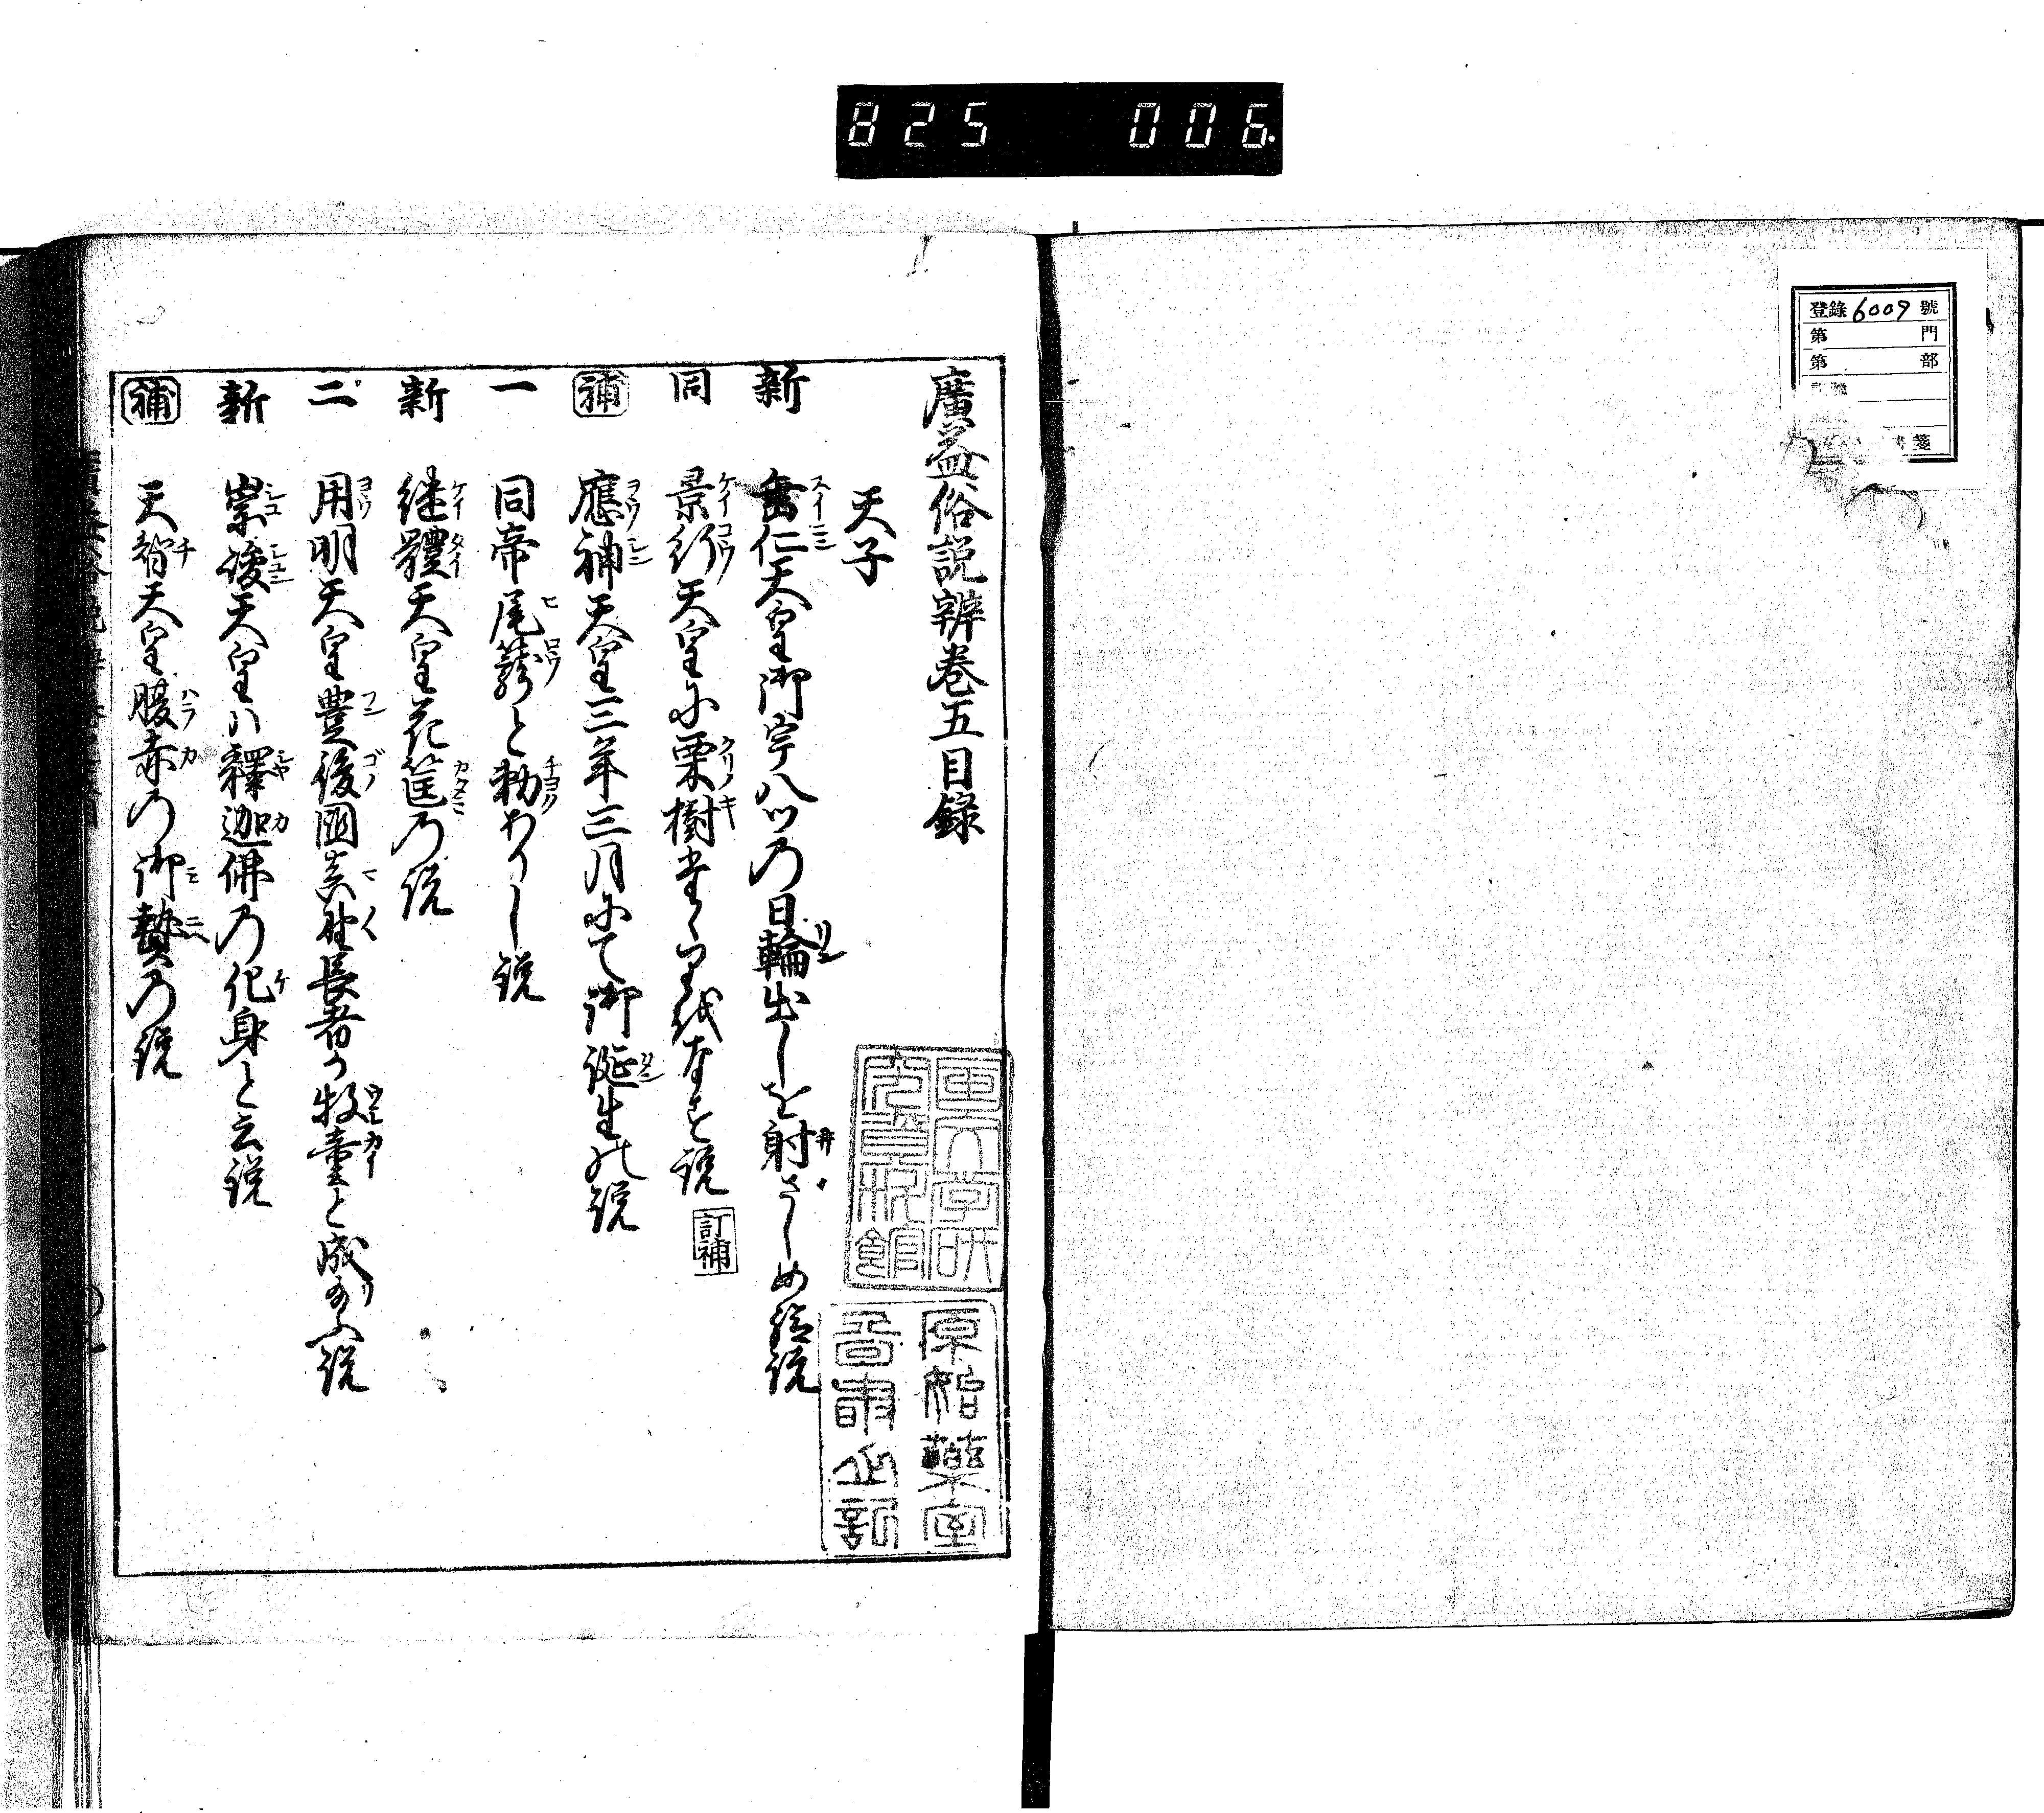 825 006
登錄6009號
第 門
第 部
箋
廣益俗説辨巻五目錄
天子
新 垂仁天皇御宇八ツの日輪出しを射さしめ給説
同 景行天皇に栗樹たゝりをなす説 訂補
補 應神天皇三年三月にて御誕生の説
一 同帝尾籠と勅ありし説
新 继體天皇花筐の説
二 用明天皇豊後國真野長者か牧童と成給ふ説
新 崇峻天皇ハ釋迦佛の化身と云説
補 天智天皇腹赤の御贄の説